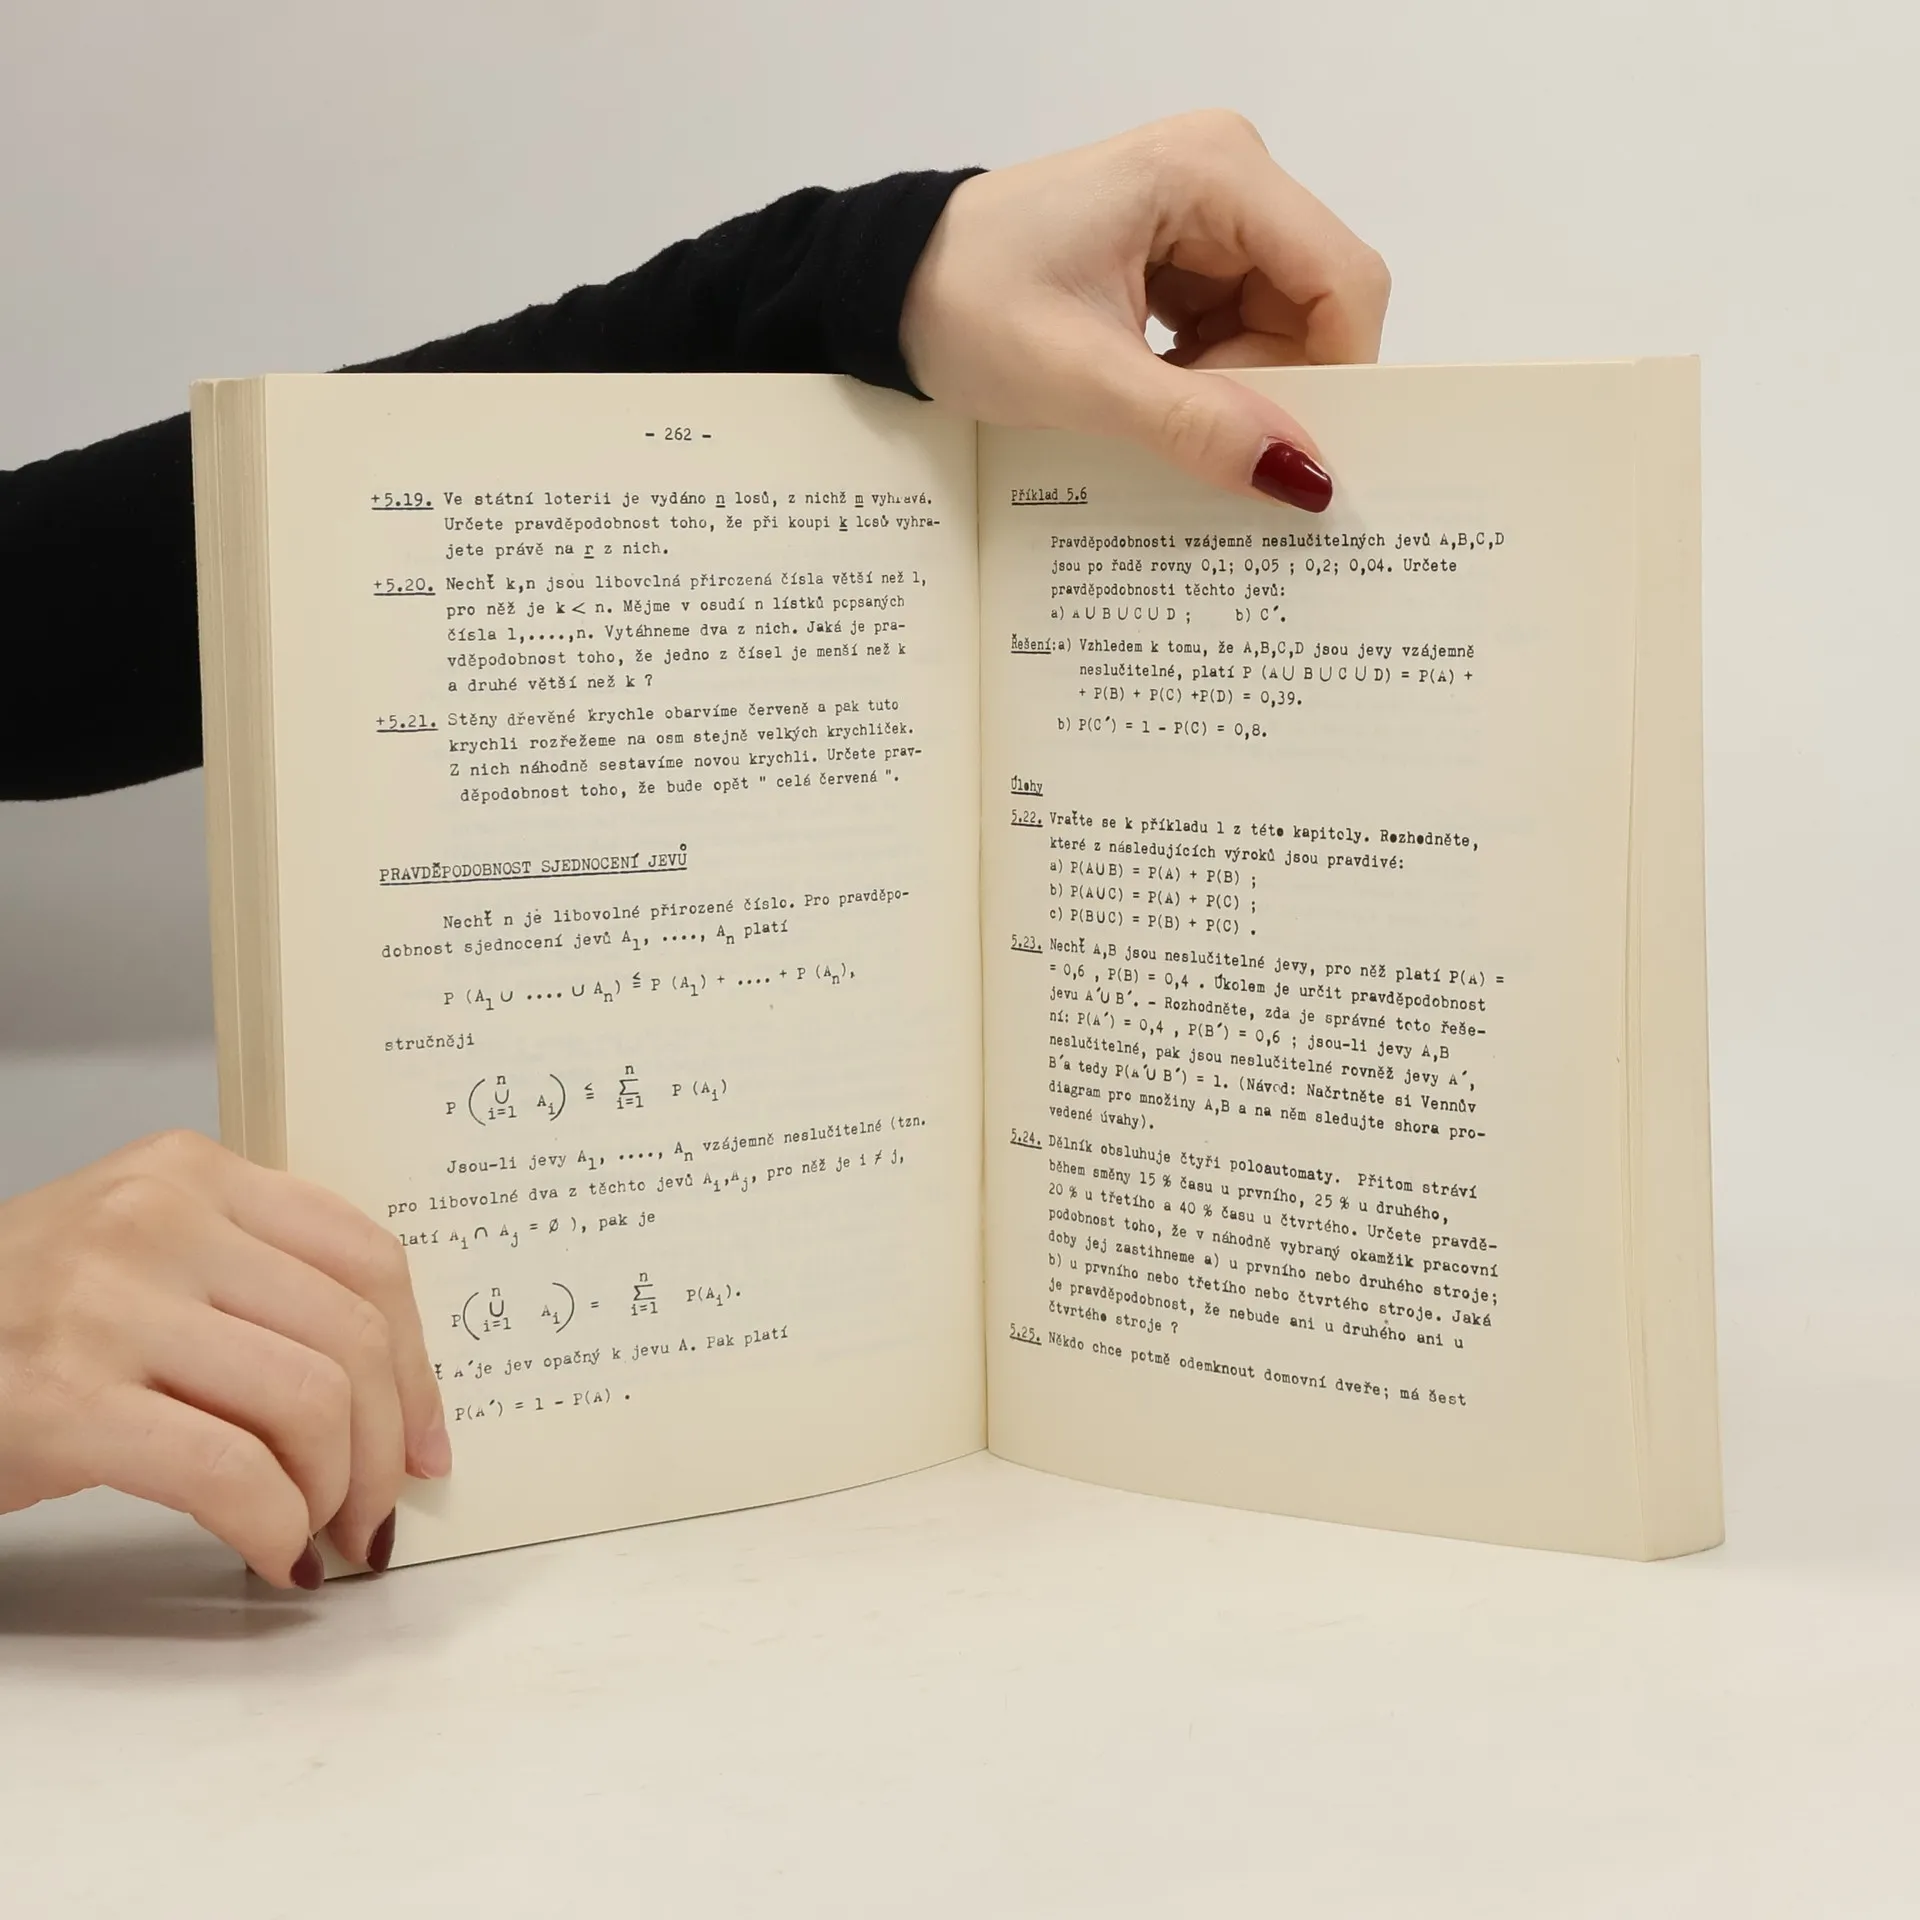 - 262 -
+5.19. Ve státní loterii je vydáno n losů, z nichž m vyhrává.
Určete pravděpodobnost toho, že při koupi k losů vyhra-
jete právě na r z nich.
+5.20. Nechť k,n jsou libovolná přirozená čísla větší než 1,
pro něž je k < n. Mějme v osudí n lístků popsaných
čísla 1,....,n. Vytáhneme dva z nich. Jaká je pra-
vděpodobnost toho, že jedno z čísel je menší než k
a druhé větší než k ?
+5.21. Stěny dřevěné krychle obarvíme červeně a pak tuto
krychli rozřežeme na osm stejně velkých krychliček.
Z nich náhodně sestavíme novou krychli. Určete prav-
děpodobnost toho, že bude opět " celá červená ".
PRAVDĚPODOBNOST SJEDNOCENÍ JEVŮ
Nechť n je libovolné přirozené číslo. Pro pravděpo-
dobnost sjednocení jevů A₁, ...., Aₙ platí
P (A₁ ∪ .... ∪ Aₙ) ≦ P (A₁) + .... + P (Aₙ),
stručněji
P ( n ∪ i=1 Aᵢ ) ≦ n Σ i=1 P (Aᵢ)
Jsou-li jevy A₁, ...., Aₙ vzájemně neslučitelné (tzn.
pro libovolné dva z těchto jevů Aᵢ,Aⱼ, pro něž je i ≠ j,
latí Aᵢ ∩ Aⱼ = Ø ), pak je
P( n ∪ i=1 Aᵢ ) = n Σ i=1 P(Aᵢ).
ť A´je jev opačný k jevu A. Pak platí
P(A´) = 1 - P(A) .
Příklad 5.6
Pravděpodobnosti vzájemně neslučitelných jevů A,B,C,D
jsou po řadě rovny 0,1; 0,05 ; 0,2; 0,04. Určete
pravděpodobnosti těchto jevů:
a) A ∪ B ∪ C ∪ D ; b) C´.
Řešení:a) Vzhledem k tomu, že A,B,C,D jsou jevy vzájemně
neslučitelné, platí P (A ∪ B ∪ C ∪ D) = P(A) +
+ P(B) + P(C) +P(D) = 0,39.
b) P(C´) = 1 - P(C) = 0,8.
Úlohy
5.22. Vraťte se k příkladu 1 z této kapitoly. Rozhodněte,
které z následujících výroků jsou pravdivé:
a) P(A∪B) = P(A) + P(B) ;
b) P(A∪C) = P(A) + P(C) ;
c) P(B∪C) = P(B) + P(C) .
5.23. Nechť A,B jsou neslučitelné jevy, pro něž platí P(A) =
= 0,6 , P(B) = 0,4 . Úkolem je určit pravděpodobnost
jevu A´∪ B´. - Rozhodněte, zda je správné toto řeše-
ní: P(A´) = 0,4 , P(B´) = 0,6 ; jsou-li jevy A,B
neslučitelné, pak jsou neslučitelné rovněž jevy A´,
B´a tedy P(A´∪ B´) = 1. (Návod: Načrtněte si Vennův
diagram pro množiny A,B a na něm sledujte shora pro-
vedené úvahy).
5.24. Dělník obsluhuje čtyři poloautomaty. Přitom stráví
během směny 15 % času u prvního, 25 % u druhého,
20 % u třetího a 40 % času u čtvrtého. Určete pravdě-
podobnost toho, že v náhodně vybraný okamžik pracovní
doby jej zastihneme a) u prvního nebo druhého stroje;
b) u prvního nebo třetího nebo čtvrtého stroje. Jaká
je pravděpodobnost, že nebude ani u druhého ani u
čtvrtého stroje ?
5.25. Někdo chce potmě odemknout domovní dveře; má šest